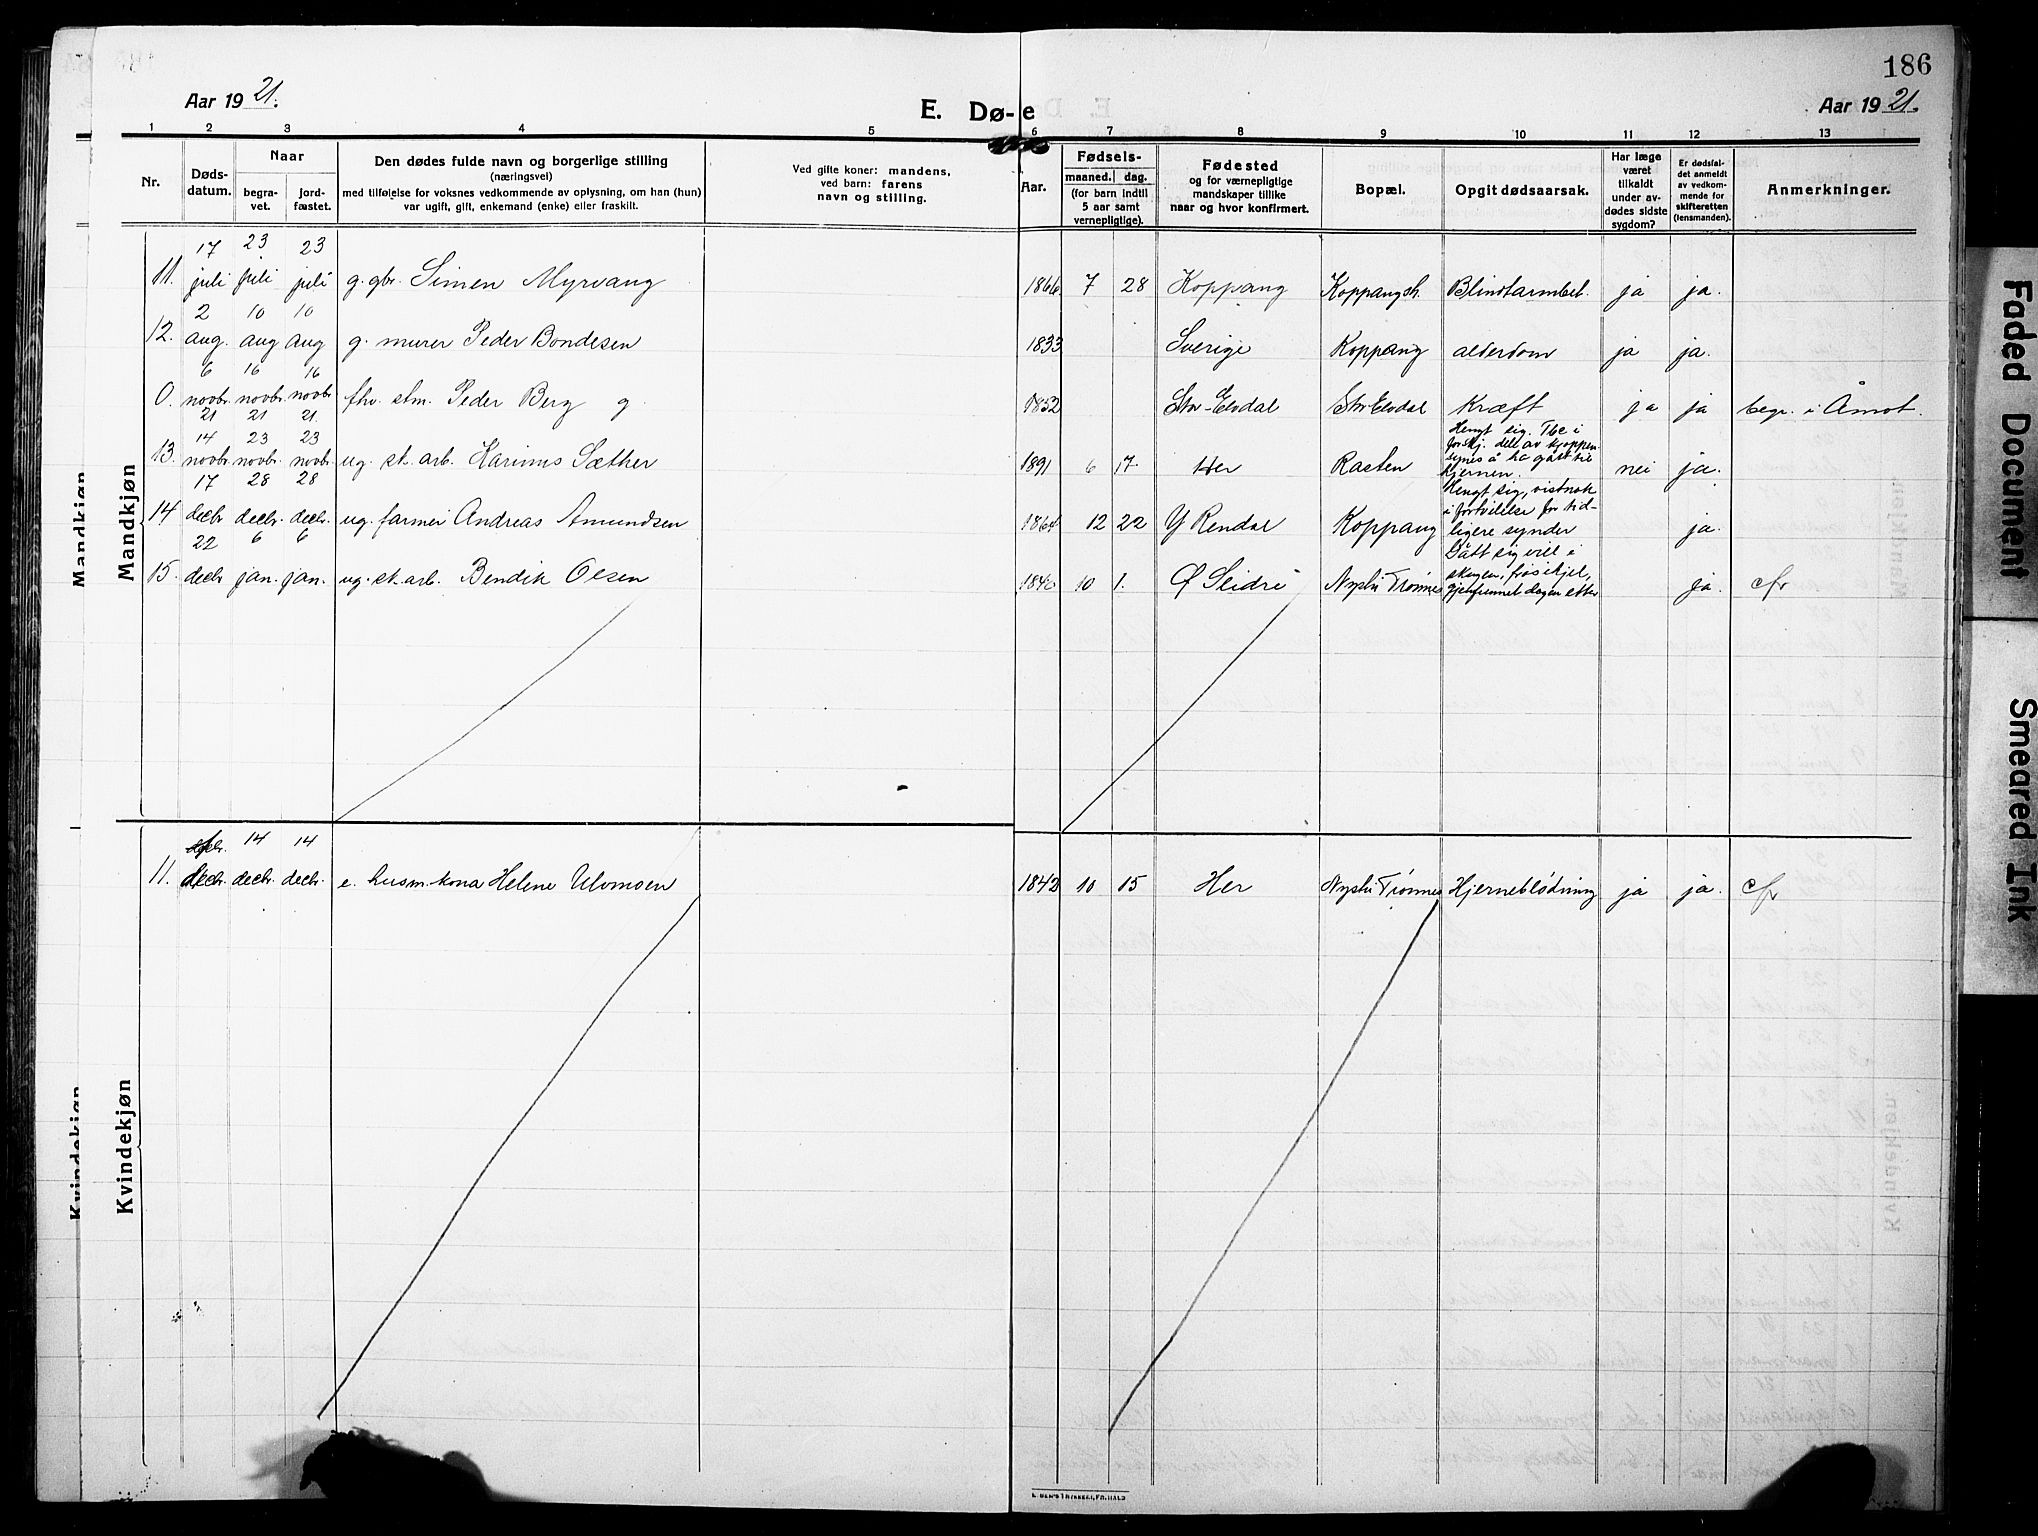 186
Aar 1921.
E. Dø-e
Aar 1921.
1 2 3 4 5 6 7 8 9 10 11 12 13
Nr.
Døds-
datum.
Naar
begra-
vet.
jord-
fæstet.
Den dødes fulde navn og borgerlige stilling
(næringsvei)
med tilføielse for voksnes vedkommende av oplysning, om han (hun)
var ugift, gift, enkemand (enke) eller fraskilt.
Ved gifte koner: mandens,
ved barn: farens
navn og stilling.
Aar.
Fødsels-
maaned. dag.
(for barn indtil
5 aar samt
vernepligtige).
Fødested
og for værnepligtige
mandskaper tillike
naar og hvor konfirmert.
Bopæl.
Opgit dødsaarsak.
Har læge
været
tilkaldt
under av-
dødes sidste
sygdom?
Er dødsfal-
det anmeldt
av vedkom-
mende for
skifteretten
(lensmanden).
Anmerkninger.
Mandkjøn
17 23 23
11. juli juli juli g. gbr. Simen Myrvang 1866 7 28 Koppang Koppangsh. Blindtarmbet. ja ja.
2 10 10
12. aug. aug aug g. murer Peder Bondesen 1833 Sverige Koppang alderdom ja ja.
6 16 16
0. novbr. novbr. novbr fhv. stm. Peder Berg g. 1852 Stor-Elvdal Stor Elvdal Kræft ja ja begr. i Åmot.
21 21 21
14 23 23
13. novbr. novbr. novbr. ug. st. arb. Karinus Sæther 1891 6 17 Her Rasten Hengt sig. Tbc i
forskj. dele av kroppen
synes å ha gått til
hjernen. nei ja.
17 28 28
14 decbr decbr. decbr. ug. farmer Andreas Amundsen 1864 12 22 Y Rendal Koppang Hengt sig, vistnok
i fortvilelse for tid-
ligere synder ja.
22 6 6
15. decbr jan. jan. ug. st. arb. Bendik Olsen 1840 10 1. Ø Slidre Nysti Trønnes Gått sig vill i
skogen, frøs ihjel,
gjenfunnet dagen etter ja. cfr
Kvindekjøn
14 14
11. decbr. decbr. decbr. e. husm. kona Helene Ulvmoen 1842 10 15 Her Nysti Trønnes Hjerneblødning ja ja. cfr
Mandkjøn
Kvindekjøn
Faded Document
Smeared Ink